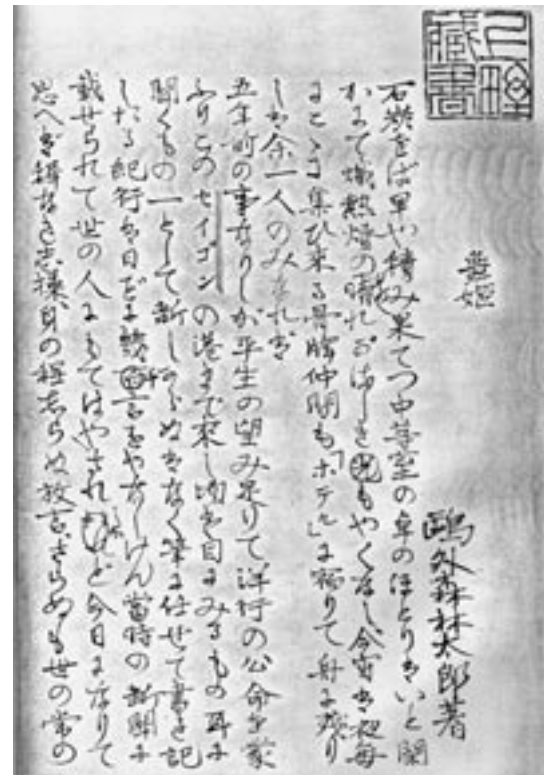 藏書
舞姫
鷗外森林太郎著
石炭をば早や積み果てつ中等室の卓のほとりはいと閑
かにて熾熱燈の晴れがましきもやくなし今宵は夜毎
にこゝに集ひ来る骨牌仲間も「ホテル」に宿りて舟に残り
しは余一人のみなれば
五年前の事なりしが平生の望み足りて洋行の公命を蒙
ふりこのセイゴンの港まで来し頃は目にみるもの耳に
聞くもの一として新しからぬはなく筆に任せて書き記
したる紀行文日ごとに幾千言をやなしけん當時の新聞に
載せられて世の人にもてはやされしかど今日になりて
思へば穉なき思想身の程しらぬ放言さらぬも世の常の